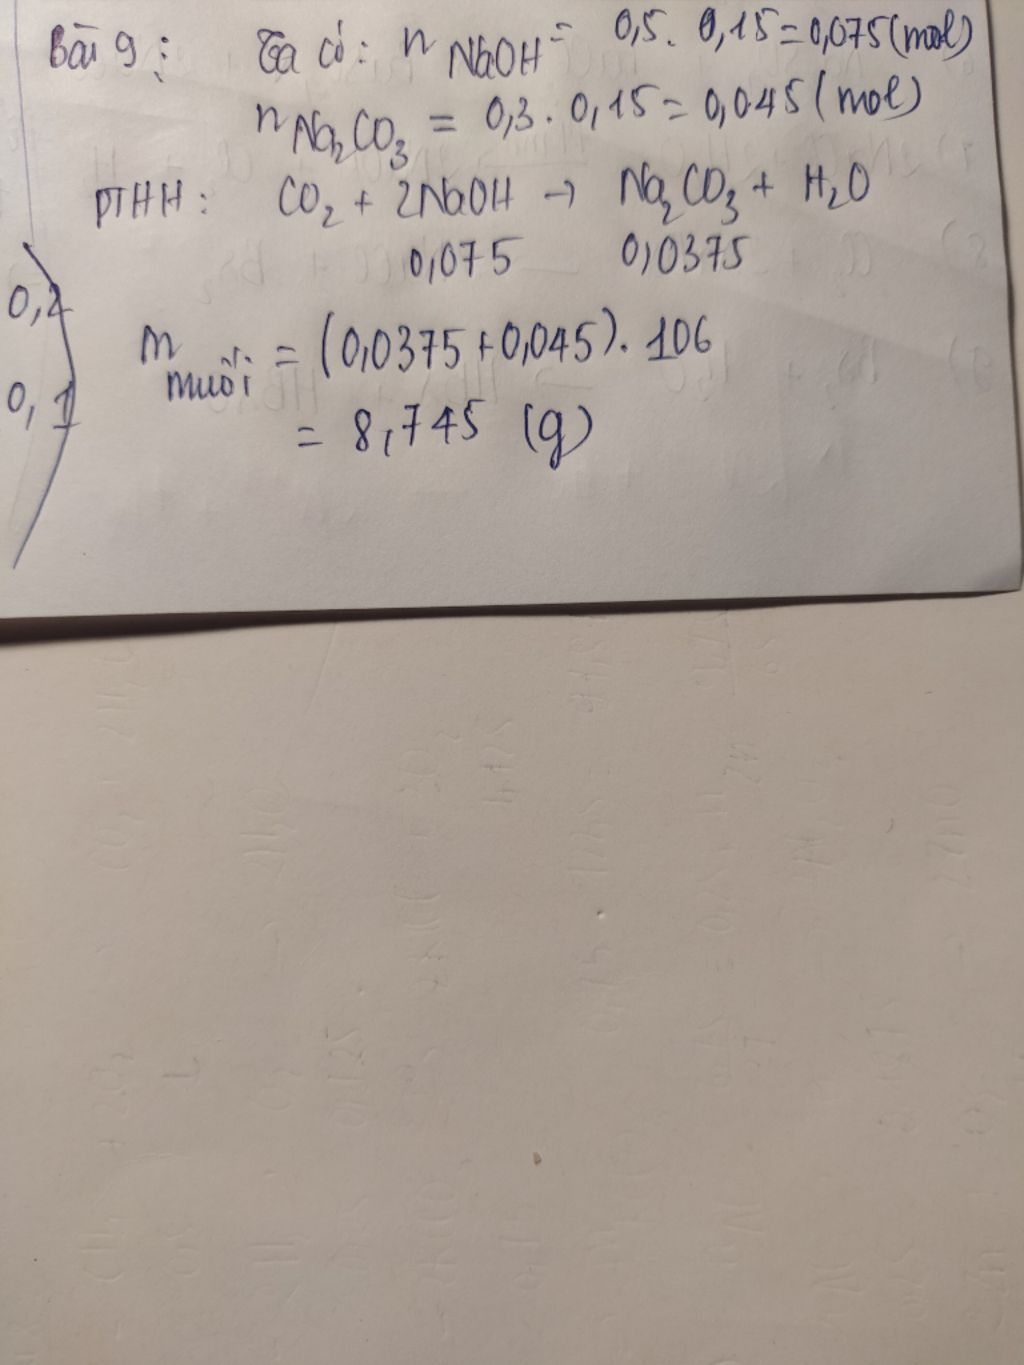 Bài 9: Ta có: n NaOH = 0,5. 0,15=0,075(mol)
n Na2CO3 = 0,3. 0,15= 0,045(mol)
PTHH: CO2 + 2NaOH → Na2CO3 + H2O
0,075 0,0375
0,2
m muối = (0,0375+0,045). 106
0,1
= 8,745 (g)